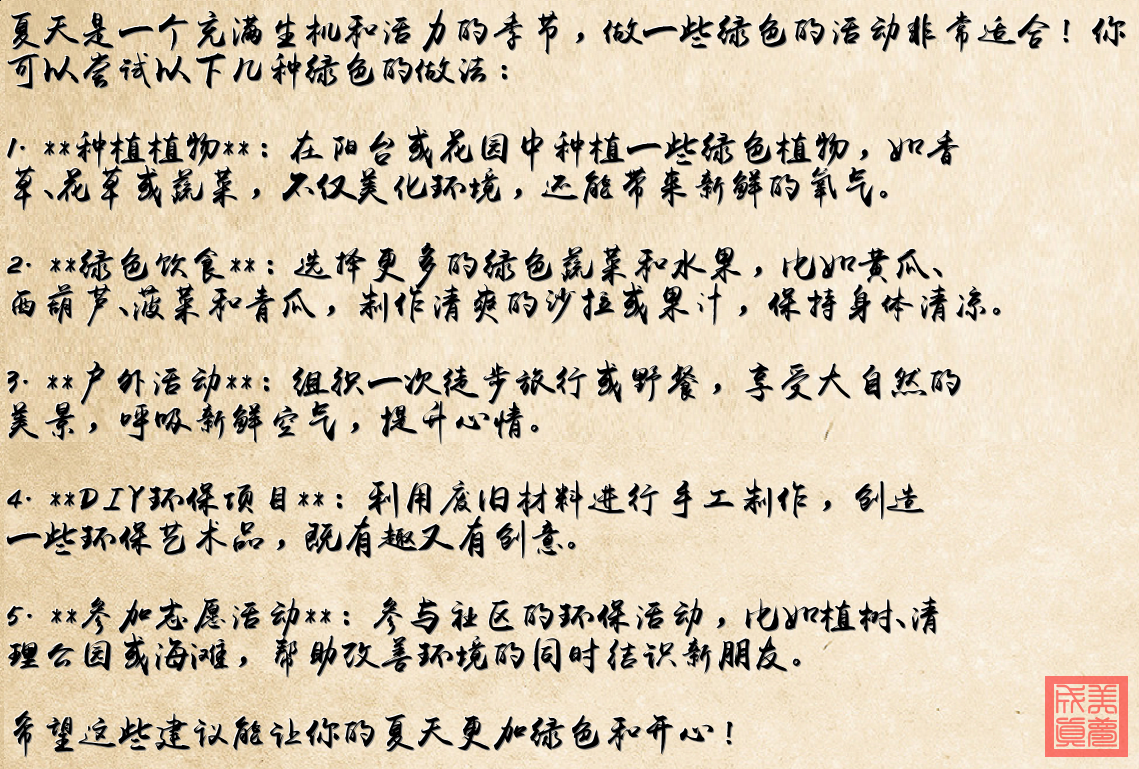 夏天是一个充满生机和活力的季节，做一些绿色的活动非常适合！你
可以尝试以下几种绿色的做法：
1. **种植植物**：在阳台或花园中种植一些绿色植物，如香
草、花草或蔬菜，不仅美化环境，还能带来新鲜的氧气。
2. **绿色饮食**：选择更多的绿色蔬菜和水果，比如黄瓜、
西葫芦、菠菜和青瓜，制作清爽的沙拉或果汁，保持身体清凉。
3. **户外活动**：组织一次徒步旅行或野餐，享受大自然的
美景，呼吸新鲜空气，提升心情。
4. **DIY环保项目**：利用废旧材料进行手工制作，创造
一些环保艺术品，既有趣又有创意。
5. **参加志愿活动**：参与社区的环保活动，比如植树、清
理公园或海滩，帮助改善环境的同时结识新朋友。
希望这些建议能让你的夏天更加绿色和开心！